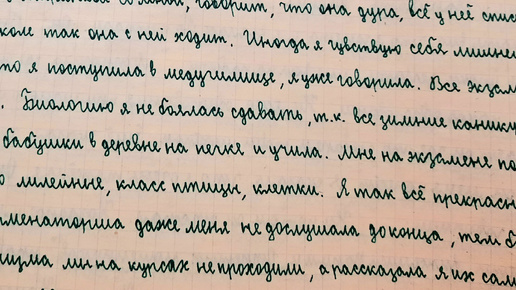 со мной, говорит, что она дура, всё у неё
так она с ней ходит. Иногда я чувствую себя
я поступила в медучилище, я уже говорила. Все
Биологию я не боялась сдавать, т.к. все зимние
бабушки в деревне на печке и учила. Мне на экзамене
лилейные, класс птицы, клетки. Я так всё
даже меня не дослушала до конца, тем
мы на курсах не проходили, а рассказала я их